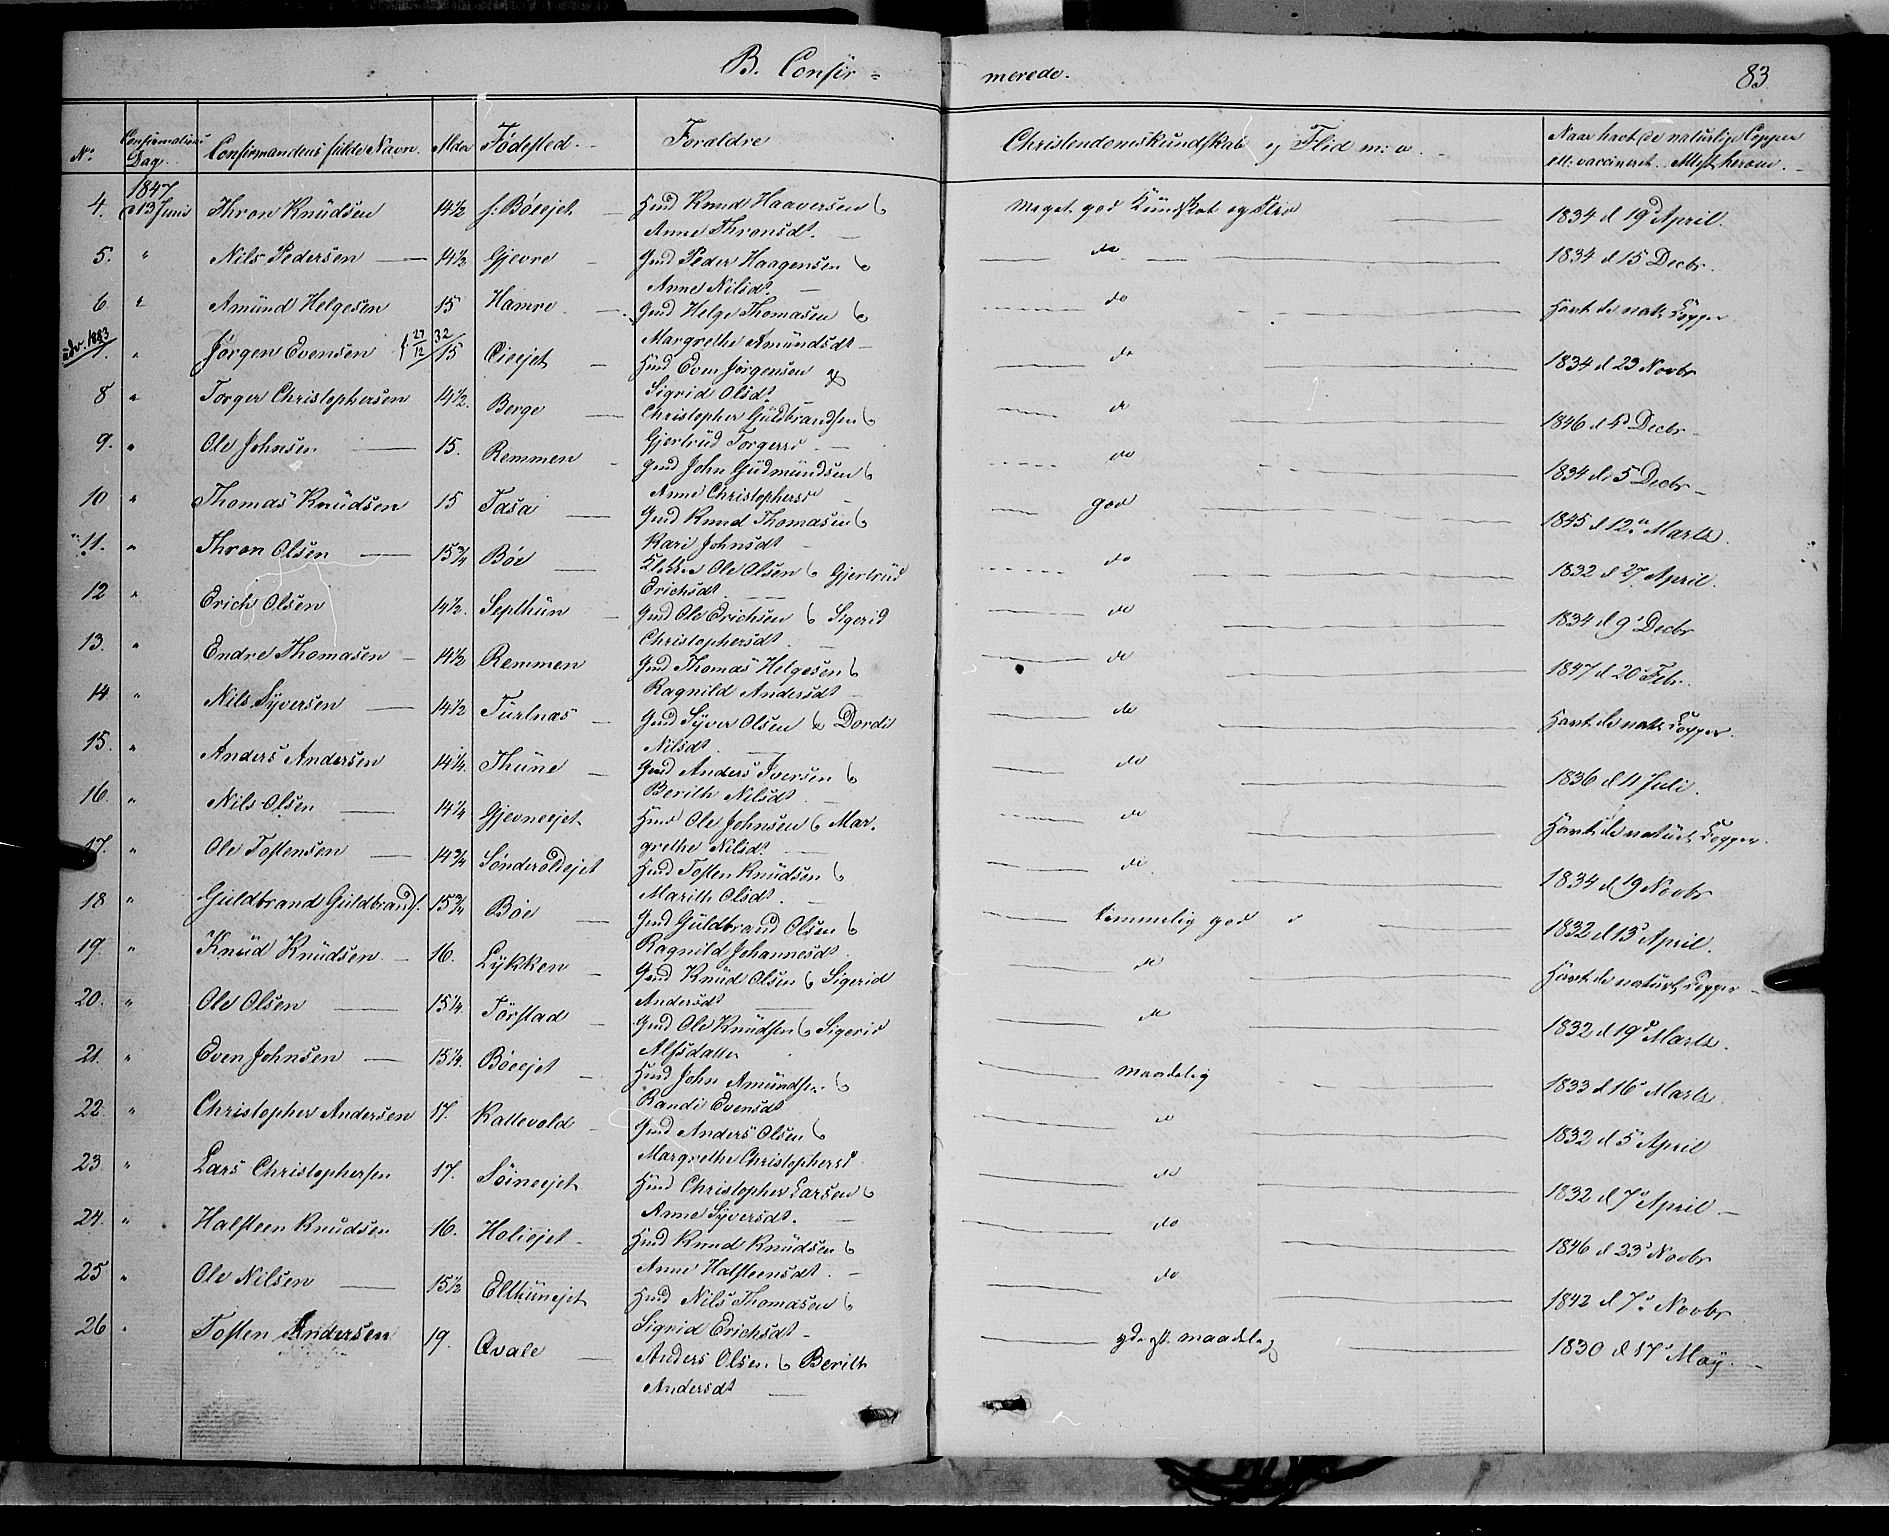 B. Confir=
merede.
83.
No.
Confirmations Dag.
Confirmandens fulde Navn.
Alder
Fødested.
Foraldre
Christendomskundskab og Flid m: v.
Naar havt de naturlige Copper
ell: vaccineret. Attest herom.
1847
4. d 13 Juni Thron Knudsen 14½ f: Bøeejet Huusd Knud Haaversen & Meget god Kundskab og Flid 1834 d 19d April.
Anne Thronsdt.
5. " Nils Pedersen 14½ Gjevre Gmd Peder Haagensen & do 1834 d 15 Decbr.
Anne Nilsdt.
6. " Amund Helgesen 15 Hamre Gmd Helge Thomasen & do Havt de natr. Kopper.
Margrethe Amundsdt
udv. 1883
7. " Jørgen Evensen f. 27/12 32 15 Cieejet Huusd Even Jørgensen & do 1834 d 23 Novbr
Sigrid Olsdt
8 " Torger Christophersen 14½. Berge Christopher Guldbrandsen & do 1846 d 5d Decbr
Gjertrud Torgersd
9. " Ole Johnsen 15. Remmen Gmd John Gudmundsen & do 1834 d 5 Decbr
Anne Christophersd
10 " Thomas Knudsen 15 Tasa Gmd Knud Thomasen & god 1845 d 12te Marts.
Kari Johnsdt
11. " Thron Olsen 15¾ Bøe Ole Olsen & Gjertrud do 1832 d 27 April.
Erichsdt.
12 " Erich Olsen 14½. Septhun Gmd Ole Erichsen & Sigerid do 1834 d 9d Decbr
Christophersdt
13. " Endre Thomasen 14½ Remmen Gmd Thomas Helgesen & do 1847 d 20d Febr.
Ragnild Andersdt
14 " Nils Syversen 14½ Turtnæs Gmd Syver Olsen & Dordi do Havt de natr. Kopper.
Nilsdt.
15. " Anders Andersen 14¼. Thune Gmd Anders Iversen & do 1836 d 11 Juli.
Berith Nilsdt.
16. " Nils Olsen 14¼ Gjevreejet Huusd Ole Johnsen & Mar- do Havt de naturl. Kopper.
grethe Nilsdt.
17. " Ole Tostensen 14¾ Sønderoldejet Huusd Tosten Knudsen & do 1834 d 19 Novbr
Marith Olsdt.
18 " Guldbrand Guldbrands. 15¾ Bøe Gmd Guldbrand Olsen & temmelig god 1832 d 13d April.
Ragnild Johannesdt
19. " Knud Knudsen 16. Lykken Gmd Knud Olsen & Sigerid do Havt de naturl. Kopper
Andersdt
20. " Ole Olsen 15¼ Tørstad Gmd Ole Knudsen & Sigerid do 1832 d 19d Marts.
Alfsdatter
21. " Even Johnsen 15¼. Bøeejet Huusd John Amundsen & maadelig 1833 d 16d Marts.
Randi Evensdt
22. " Christopher Andersen 17. Kattevold Gmd Anders Olsen & do 1832 d 5d April
Margrethe Christophersd.
23. " Lars Christophersen 17. Søineejet Huusd Christopher Larsen & do 1832 d 7d April
Anne Syversdt.
24. " Halsteen Knudsen 16. Holieejet Huusd Knud Knudsen & do 1846 d 23d Novbr
Anne Halsteensdt.
25 " Ole Nilsen 15½ Elthunejet Huusd Nils Thomasen & do 1842 d 7d Novbr
Sigrid Erichsdt
26 " Tosten Andersen 19. Qvale Anders Olsen & Berith yderst maadelig 1830 d 17d May.
Andersdt